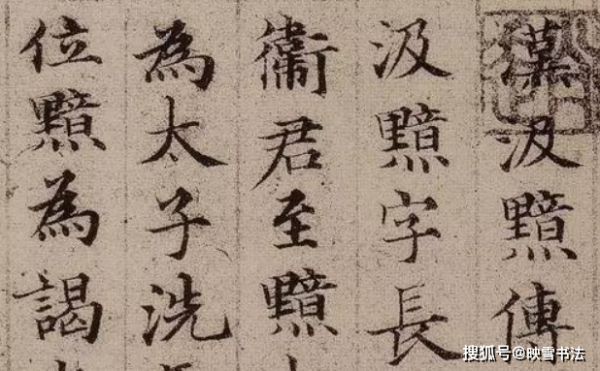 漢汲黯傳
汲黯字長
衛君至黯
為太子洗
位黯為謁
搜狐号@映雪书法